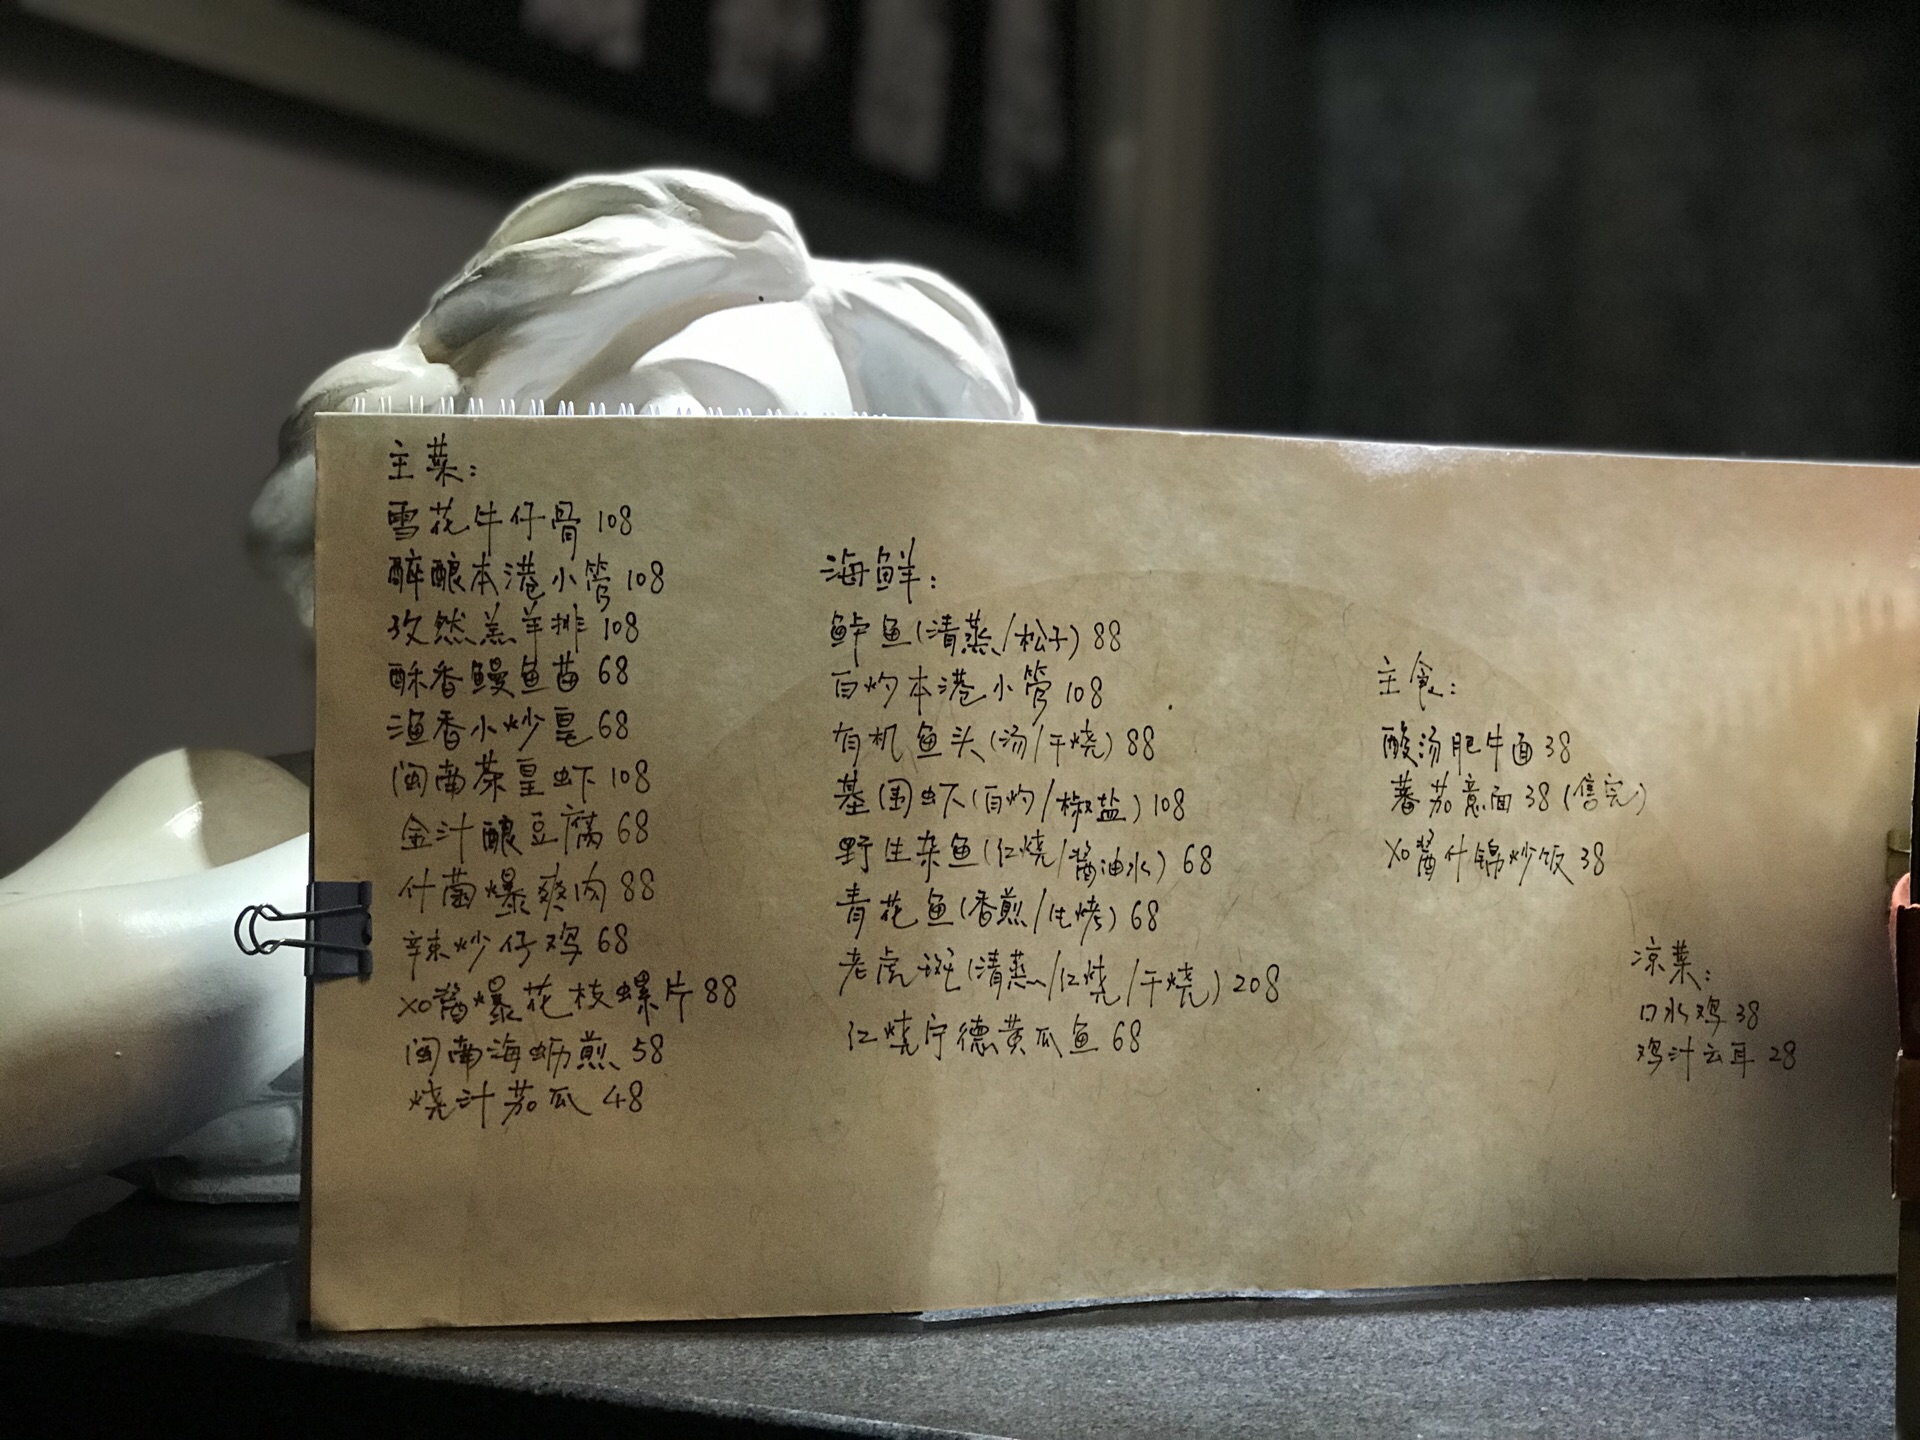 主菜：
雪花牛仔骨 108
醉酿本港小管 108
孜然羔羊排 108
酥香鳗鱼苗 68
渔香小炒皇 68
闽南茶皇虾 108
金汁酿豆腐 68
什菌爆爽肉 88
辣炒仔鸡 68
XO酱爆花枝螺片 88
闽南海蛎煎 58
烧汁茄瓜 48
海鲜：
鲈鱼(清蒸/松子) 88
白灼本港小管 108
有机鱼头(汤/干烧) 88
基围虾(白灼/椒盐) 108
野生杂鱼(红烧/酱油水) 68
青花鱼(香煎/生烤) 68
老虎斑(清蒸/红烧/干烧) 208
红烧宁德黄瓜鱼 68
主食：
酸汤肥牛面 38
蕃茄意面 38 (售完)
XO酱什锦炒饭 38
凉菜：
口水鸡 38
鸡汁云耳 28